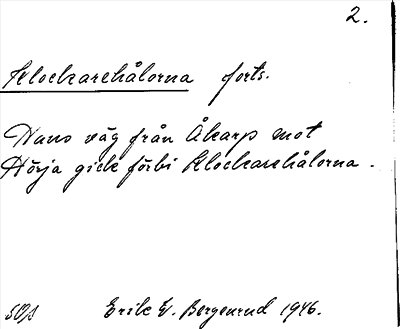 2.
Klockarehålorna forts.
Hans väg från Åkarp mot
Hörja gick förbi Klockarehålorna.
Erik W. Bergenrud 1946.